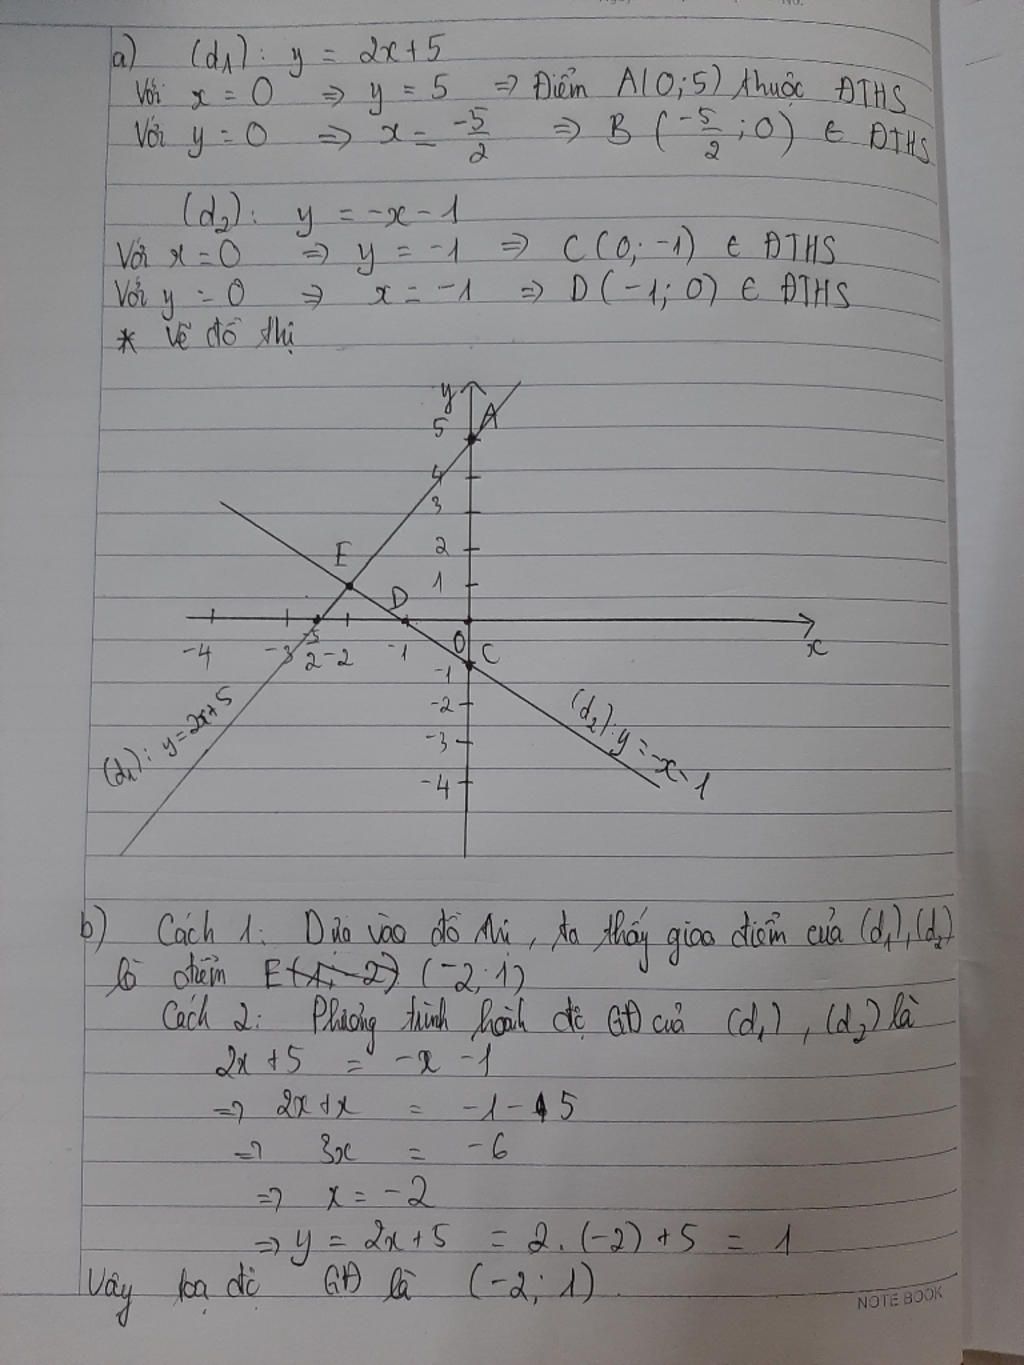 a) (d₁): y = 2x+5
Với x = 0 => y = 5 => Điểm A(0;5) thuộc ĐTHS
Với y = 0 => x = -5/2 => B (-5/2;0) ∈ ĐTHS
(d₂): y = -x - 1
Với x = 0 => y = -1 => C(0;-1) ∈ ĐTHS
Với y = 0 => x = -1 => D(-1;0) ∈ ĐTHS
* Vẽ đồ thị
y
A
5
4
3
E
2
1
D
-4 -3 -5/2 -2 -1 O x
C
-1
-2
-3
-4
(d₁): y=2x+5
(d₂): y=-x-1
b) Cách 1: Dựa vào đồ thị, ta thấy giao điểm của (d₁),(d₂)
là điểm E (-2;1)
Cách 2: Phương trình hoành độ GĐ của (d₁), (d₂) là
2x+5 = -x -1
=> 2x+x = -1-5
=> 3x = -6
=> x = -2
=> y = 2x+5 = 2.(-2)+5 = 1
Vậy toạ độ GĐ là (-2;1).
NOTE BOOK